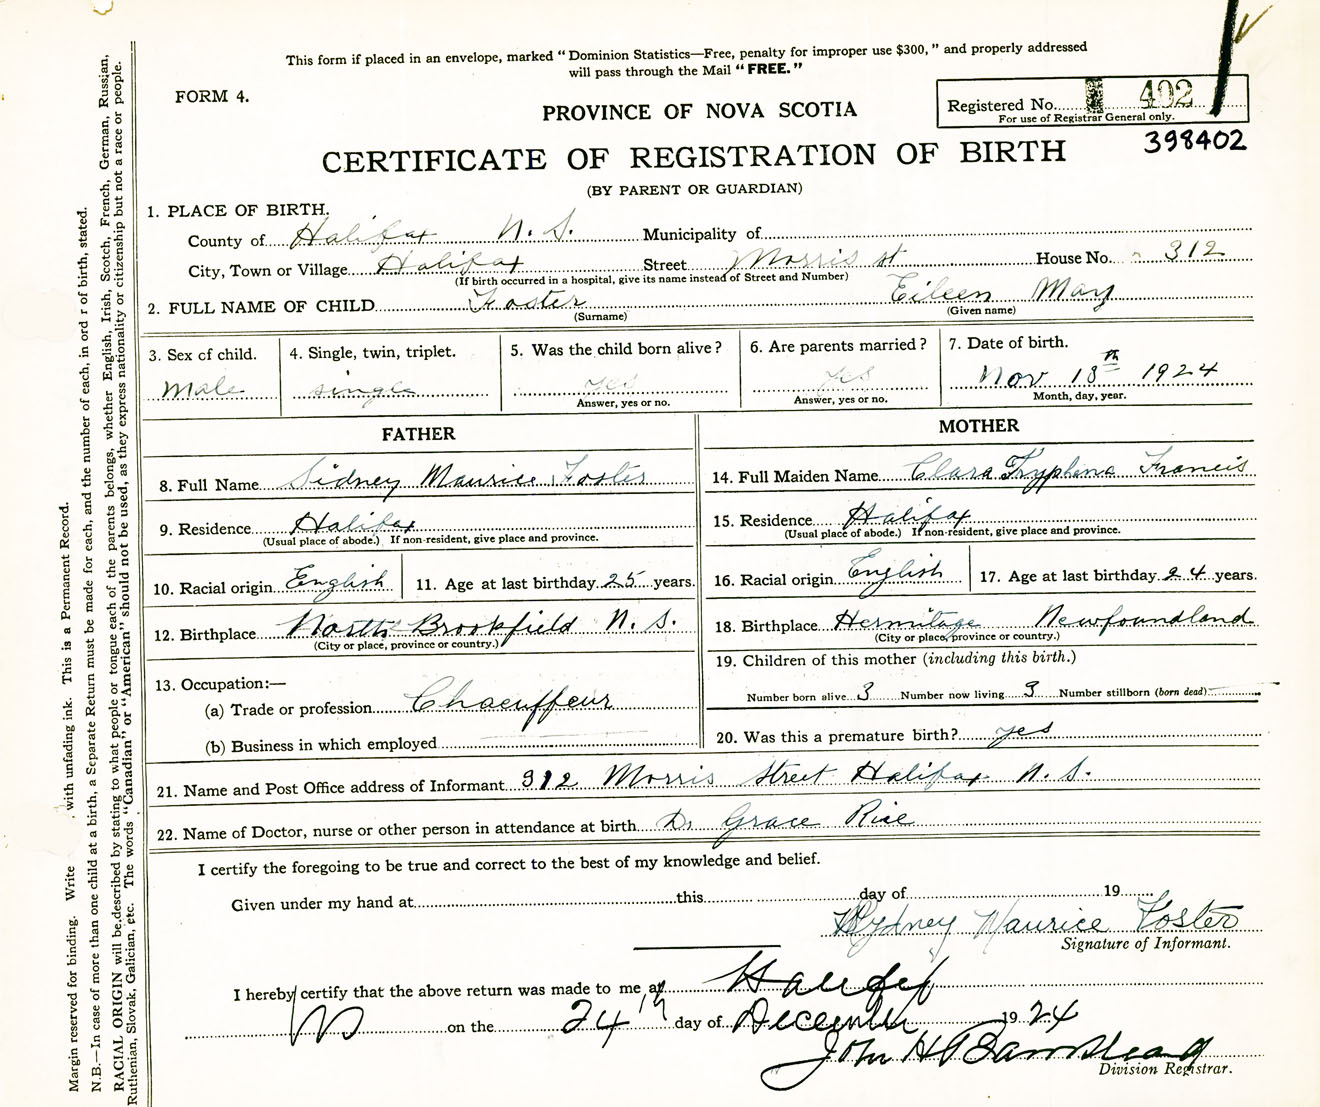 This form if placed in an envelope, marked "Dominion Statistics—Free, penalty for improper use $300," and properly addressed
will pass through the Mail "FREE."
FORM 4.
PROVINCE OF NOVA SCOTIA
Registered No. 402
For use of Registrar General only.
398402
CERTIFICATE OF REGISTRATION OF BIRTH
(BY PARENT OR GUARDIAN)
1. PLACE OF BIRTH.
County of Halifax N. S. Municipality of
City, Town or Village Halifax Street Morris st House No. 312
(If birth occurred in a hospital, give its name instead of Street and Number)
2. FULL NAME OF CHILD Foster Eileen May
(Surname) (Given name)
3. Sex of child. 4. Single, twin, triplet. 5. Was the child born alive? 6. Are parents married? 7. Date of birth.
Male single yes yes Nov 18th 1924
Answer, yes or no. Answer, yes or no. Month, day, year.
FATHER MOTHER
8. Full Name Sidney Maurice Foster
9. Residence Halifax
(Usual place of abode.) If non-resident, give place and province.
10. Racial origin English 11. Age at last birthday 25 years.
12. Birthplace North Brookfield N. S.
(City or place, province or country.)
13. Occupation:—
(a) Trade or profession Chaeuffeur
(b) Business in which employed
14. Full Maiden Name Clara Tryphena Francis
15. Residence Halifax
(Usual place of abode.) If non-resident, give place and province.
16. Racial origin English 17. Age at last birthday 24 years.
18. Birthplace Hermitage Newfoundland
(City or place, province or country.)
19. Children of this mother (including this birth.)
Number born alive 3 Number now living 3 Number stillborn (born dead) —
20. Was this a premature birth? yes
21. Name and Post Office address of Informant 312 Morris Street Halifax N. S.
22. Name of Doctor, nurse or other person in attendance at birth Dr Grace Rice
I certify the foregoing to be true and correct to the best of my knowledge and belief.
Given under my hand at this day of 19
Sydney Maurice Foster
Signature of Informant.
I hereby certify that the above return was made to me at Halifax
on the 24th day of December 1924
John H Barnstead
Division Registrar.
Margin reserved for binding. Write with unfading ink. This is a Permanent Record.
N.B.—In case of more than one child at a birth, a Separate Return must be made for each, and the number of each, in ord r of birth, stated.
RACIAL ORIGIN will be described by stating to what people or tongue each of the parents belongs, whether English, Irish, Scotch, French, German, Russian,
Ruthenian, Slovak, Galician, etc. The words "Canadian" or "American" should not be used, as they express nationality or citizenship but not a race or people.